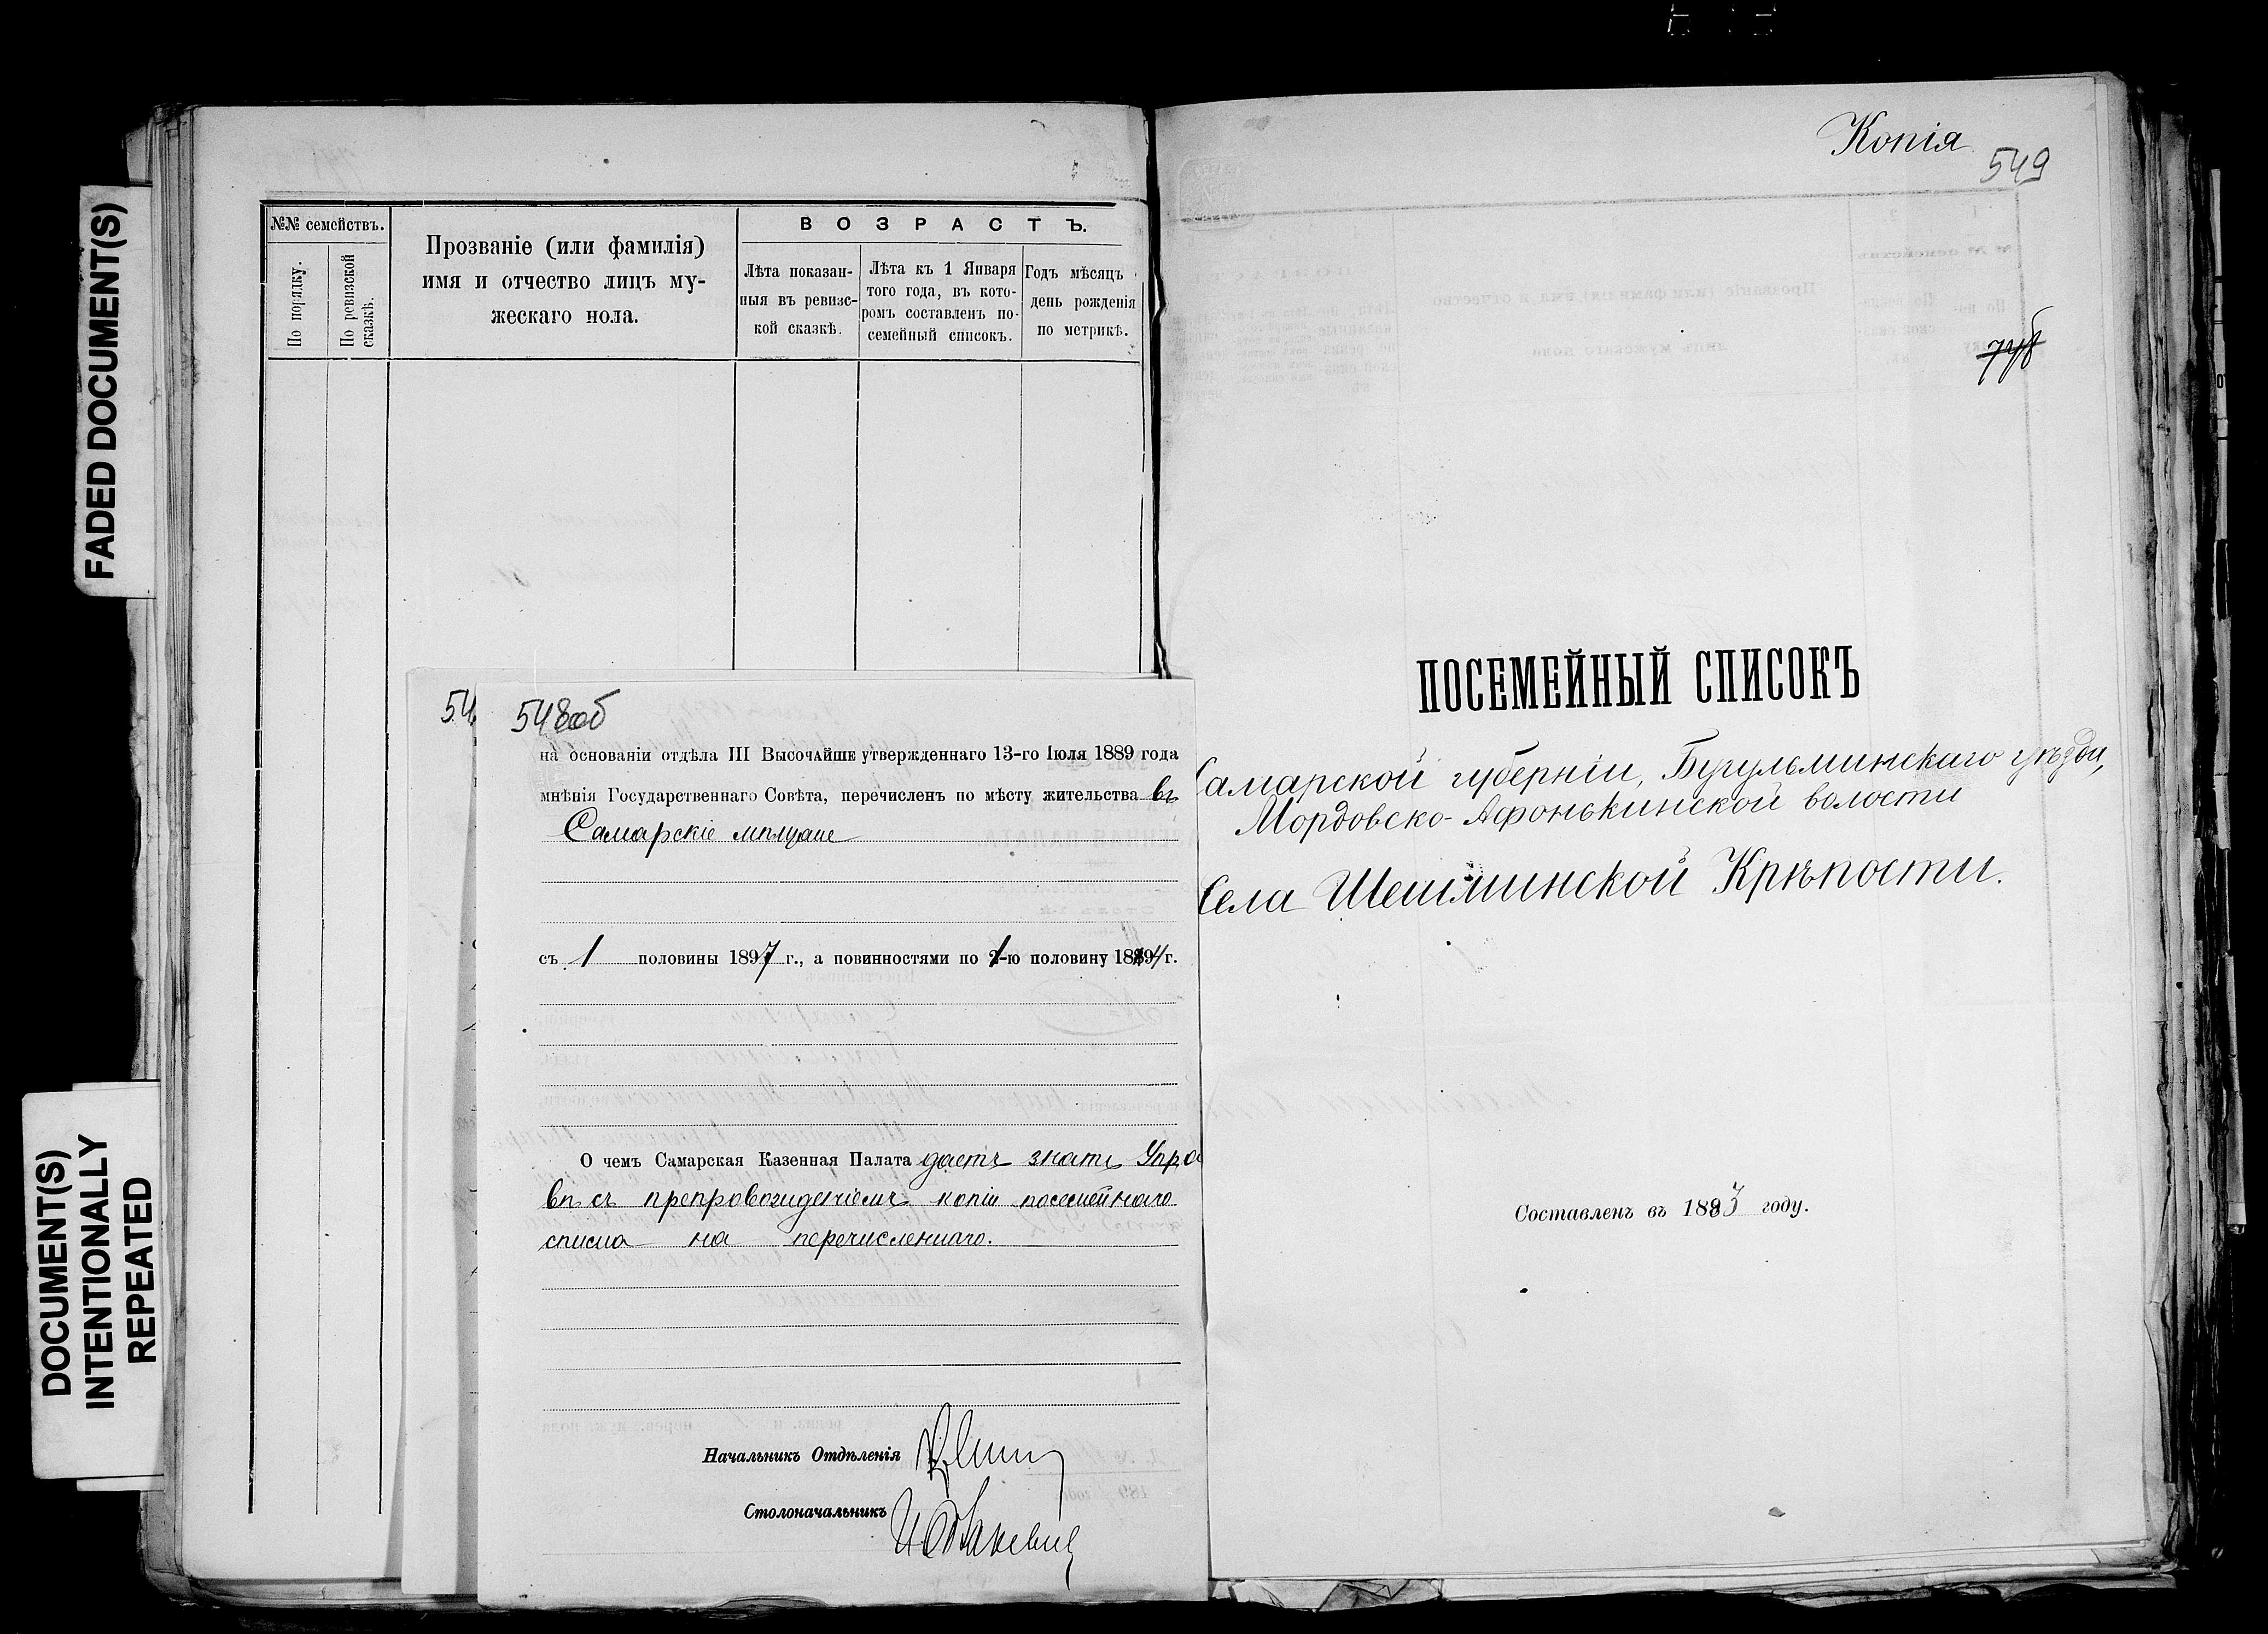 FADED DOCUMENT(S)
DOCUMENT(S)
INTENTIONALLY
REPEATED
№№ семействъ.
По порядку.
По ревизской
сказкѣ.
Прозваніе (или фамилія)
имя и отчество лицъ му-
жескаго пола.
ВОЗРАСТЪ.
Лѣта показан-
ныя въ ревизс-
кой сказкѣ.
Лѣта къ 1 Января
того года, въ кото-
ромъ составленъ по-
семейный списокъ.
Годъ мѣсяцъ
день рожденія
по метрикѣ.
54
548об
на основаніи отдѣла III Высочайше утвержденнаго 13-го Іюля 1889 года
мнѣнія Государственнаго Совѣта, перечисленъ по мѣсту жительства въ
Самарскіе мѣщане
съ 1 половины 1897 г., а повинностями по 1-ю половину г.
О чемъ Самарская Казенная Палата даетъ знать Упра
вѣ съ препровожденіемъ копіи посемейнаго
списка на перечисленнаго.
Начальникъ Отдѣленія
Столоначальникъ
Копія
549
ПОСЕМЕЙНЫЙ СПИСОКЪ
Самарской губерніи, Бугульминскаго уѣзда,
Мордовско-Афонькинской волости
Села Шешминской Крѣпости.
Составленъ въ 1893 году.